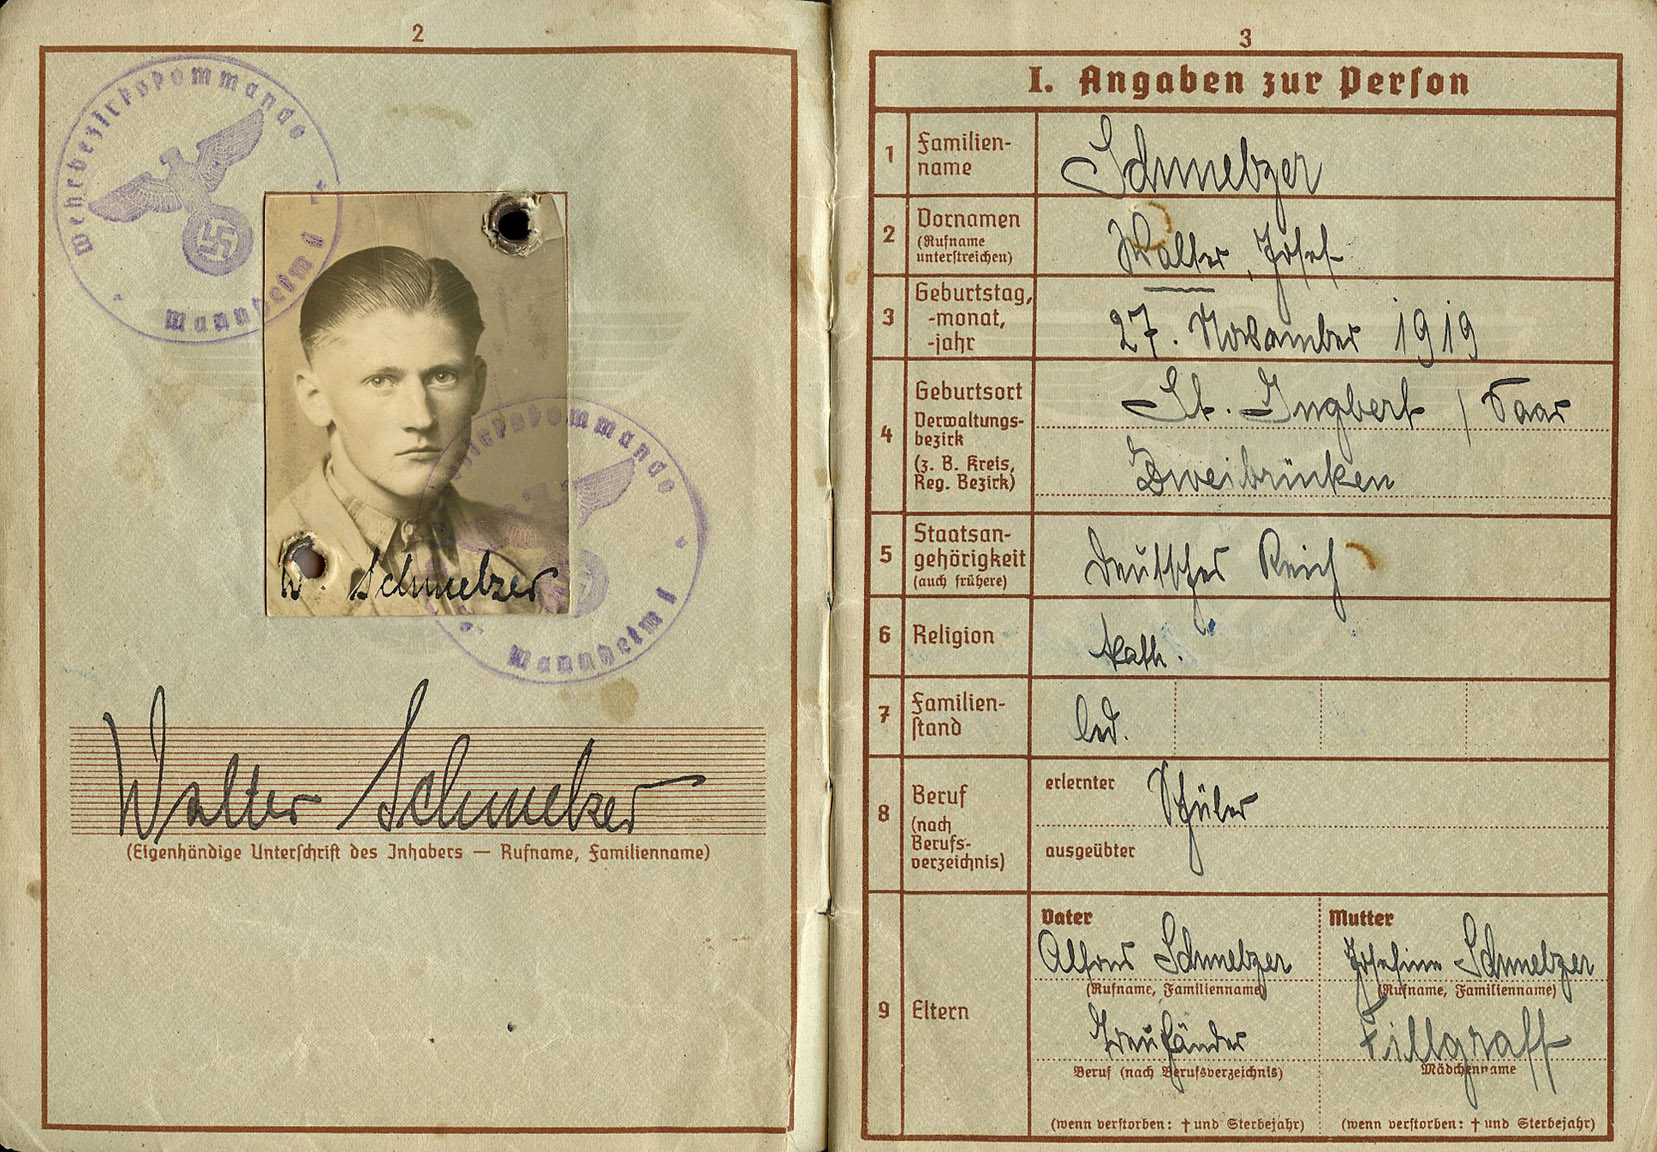 2
Wehrbezirkskommando
Mannheim I
W. Schmelzer
Wehrbezirkskommando
Mannheim I
Walter Schmelzer
(Eigenhändige Unterschrift des Inhabers — Rufname, Familienname)
3
I. Angaben zur Person
1 Familien-
name
Schmelzer
2 Vornamen
(Rufname
unterstreichen)
Walter, Josef
3 Geburtstag,
-monat,
-jahr
27. November 1919
4 Geburtsort
Verwaltungs-
bezirk
(z. B. Kreis,
Reg. Bezirk)
St. Ingbert / Saar
Zweibrücken
5 Staatsan-
gehörigkeit
(auch frühere)
Deutsches Reich
6 Religion
kath.
7 Familien-
stand
led.
8 Beruf
(nach
Berufs-
verzeichnis)
erlernter Schüler
ausgeübter
9 Eltern
Vater
Alfons Schmelzer
(Rufname, Familienname)
Beruf (nach Berufsverzeichnis)
(wenn verstorben: † und Sterbejahr)
Mutter
Josefine Schmelzer
(Rufname, Familienname)
Fillgraff
Mädchenname
(wenn verstorben: † und Sterbejahr)